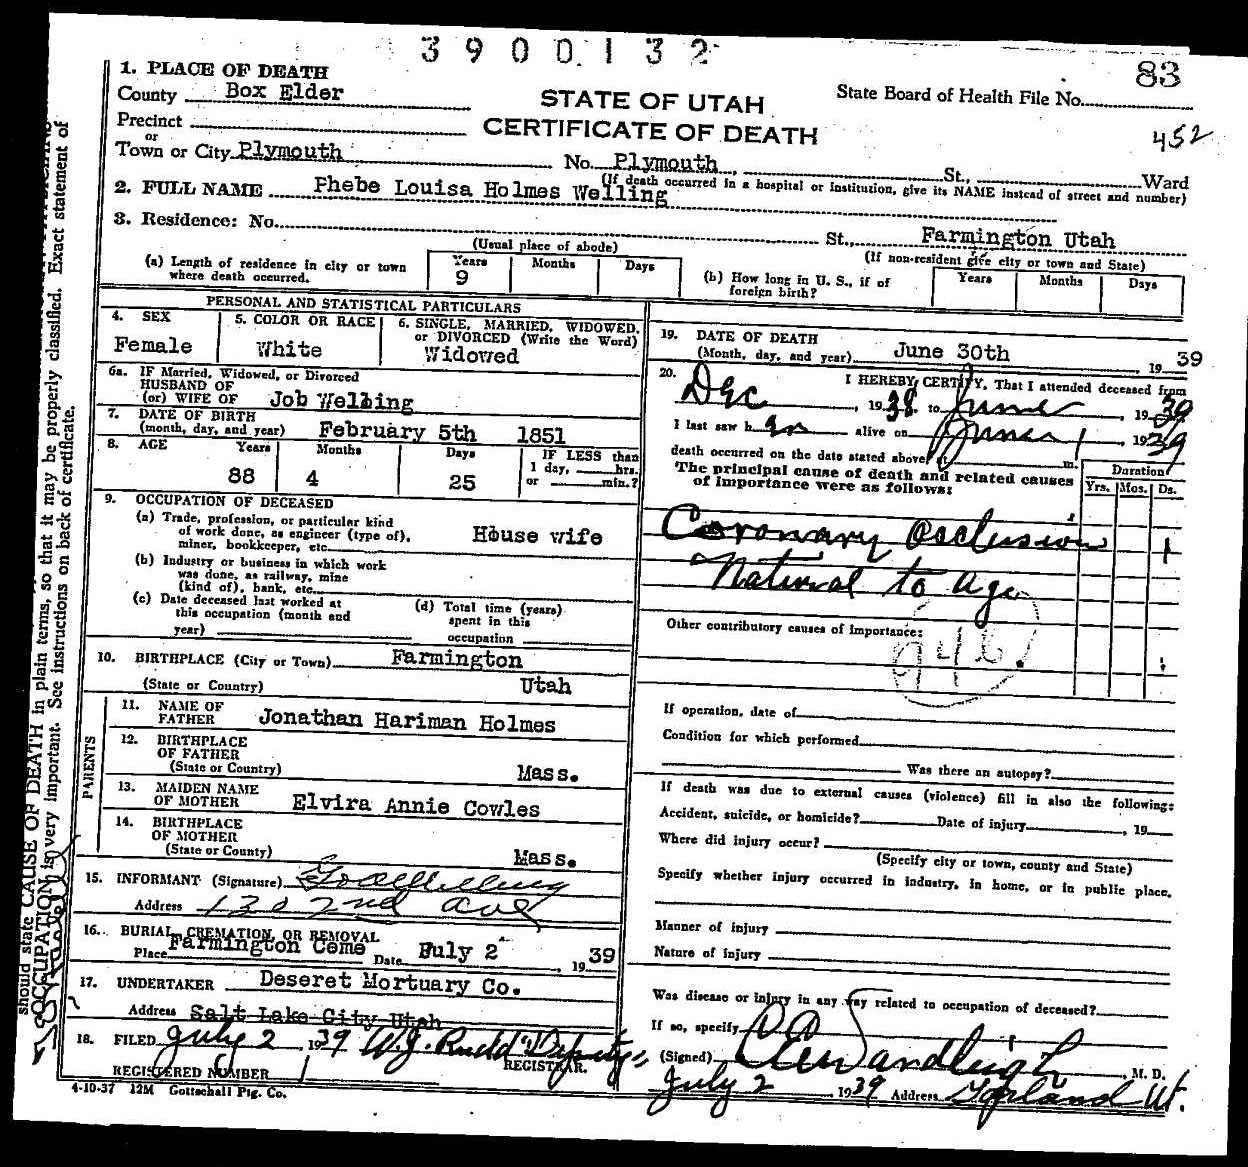 3900132
83
1. PLACE OF DEATH
County Box Elder
STATE OF UTAH
State Board of Health File No.
CERTIFICATE OF DEATH
452
Precinct
or
Town or City Plymouth No. Plymouth St., Ward
(If death occurred in a hospital or institution, give its NAME instead of street and number)
2. FULL NAME Phebe Louisa Holmes Welling
3. Residence: No. St., Farmington Utah
(Usual place of abode) (If non-resident give city or town and State)
(a) Length of residence in city or town where death occurred. Years 9 Months Days
(b) How long in U. S., if of foreign birth? Years Months Days
PERSONAL AND STATISTICAL PARTICULARS
4. SEX Female
5. COLOR OR RACE White
6. SINGLE, MARRIED, WIDOWED, or DIVORCED (Write the Word) Widowed
6a. IF Married, Widowed, or Divorced
HUSBAND OF
(or) WIFE OF Job Welling
7. DATE OF BIRTH
(month, day, and year) February 5th 1851
8. AGE Years Months Days IF LESS than
1 day, hrs.
88 4 25 or min.?
9. OCCUPATION OF DECEASED
(a) Trade, profession, or particular kind
of work done, as engineer (type of),
miner, bookkeeper, etc. House wife
(b) Industry or business in which work
was done, as railway, mine
(kind of), bank, etc.
(c) Date deceased last worked at
this occupation (month and
year)
(d) Total time (years)
spent in this
occupation
10. BIRTHPLACE (City or Town) Farmington
(State or Country) Utah
PARENTS
11. NAME OF
FATHER Jonathan Hariman Holmes
12. BIRTHPLACE
OF FATHER
(State or Country) Mass.
13. MAIDEN NAME
OF MOTHER Elvira Annie Cowles
14. BIRTHPLACE
OF MOTHER
(State or County) Mass.
15. INFORMANT (Signature) Welling
Address 130 2nd Ave
16. BURIAL, CREMATION, OR REMOVAL
Place Farmington Ceme Date July 2, 1939
17. UNDERTAKER Deseret Mortuary Co.
Address Salt Lake City Utah
18. FILED July 2, 1939 W.J. Rudd Deputy
REGISTRAR.
REGISTERED NUMBER 1
4-10-37 12M Gottschall Ptg. Co.
19. DATE OF DEATH
(Month, day, and year) June 30th 1939
20. I HEREBY CERTIFY, That I attended deceased from
Dec, 1938 to June, 1939
I last saw her alive on June 1, 1939
death occurred on the date stated above, at m.
The principal cause of death and related causes
of importance were as follows:
Duration
Yrs. Mos. Ds.
Coronary Occlusion 1
Natural to age
Other contributory causes of importance:
94b.
If operation, date of
Condition for which performed
Was there an autopsy?
If death was due to external causes (violence) fill in also the following:
Accident, suicide, or homicide? Date of injury, 19
Where did injury occur?
(Specify city or town, county and State)
Specify whether injury occurred in industry, in home, or in public place.
Manner of injury
Nature of injury
Was disease or injury in any way related to occupation of deceased?
If so, specify
(Signed) M. D.
July 2 1939 Address Garland Ut.
should state CAUSE OF DEATH in plain terms, so that it may be properly classified. Exact statement of
OCCUPATION is very important. See instructions on back of certificate.